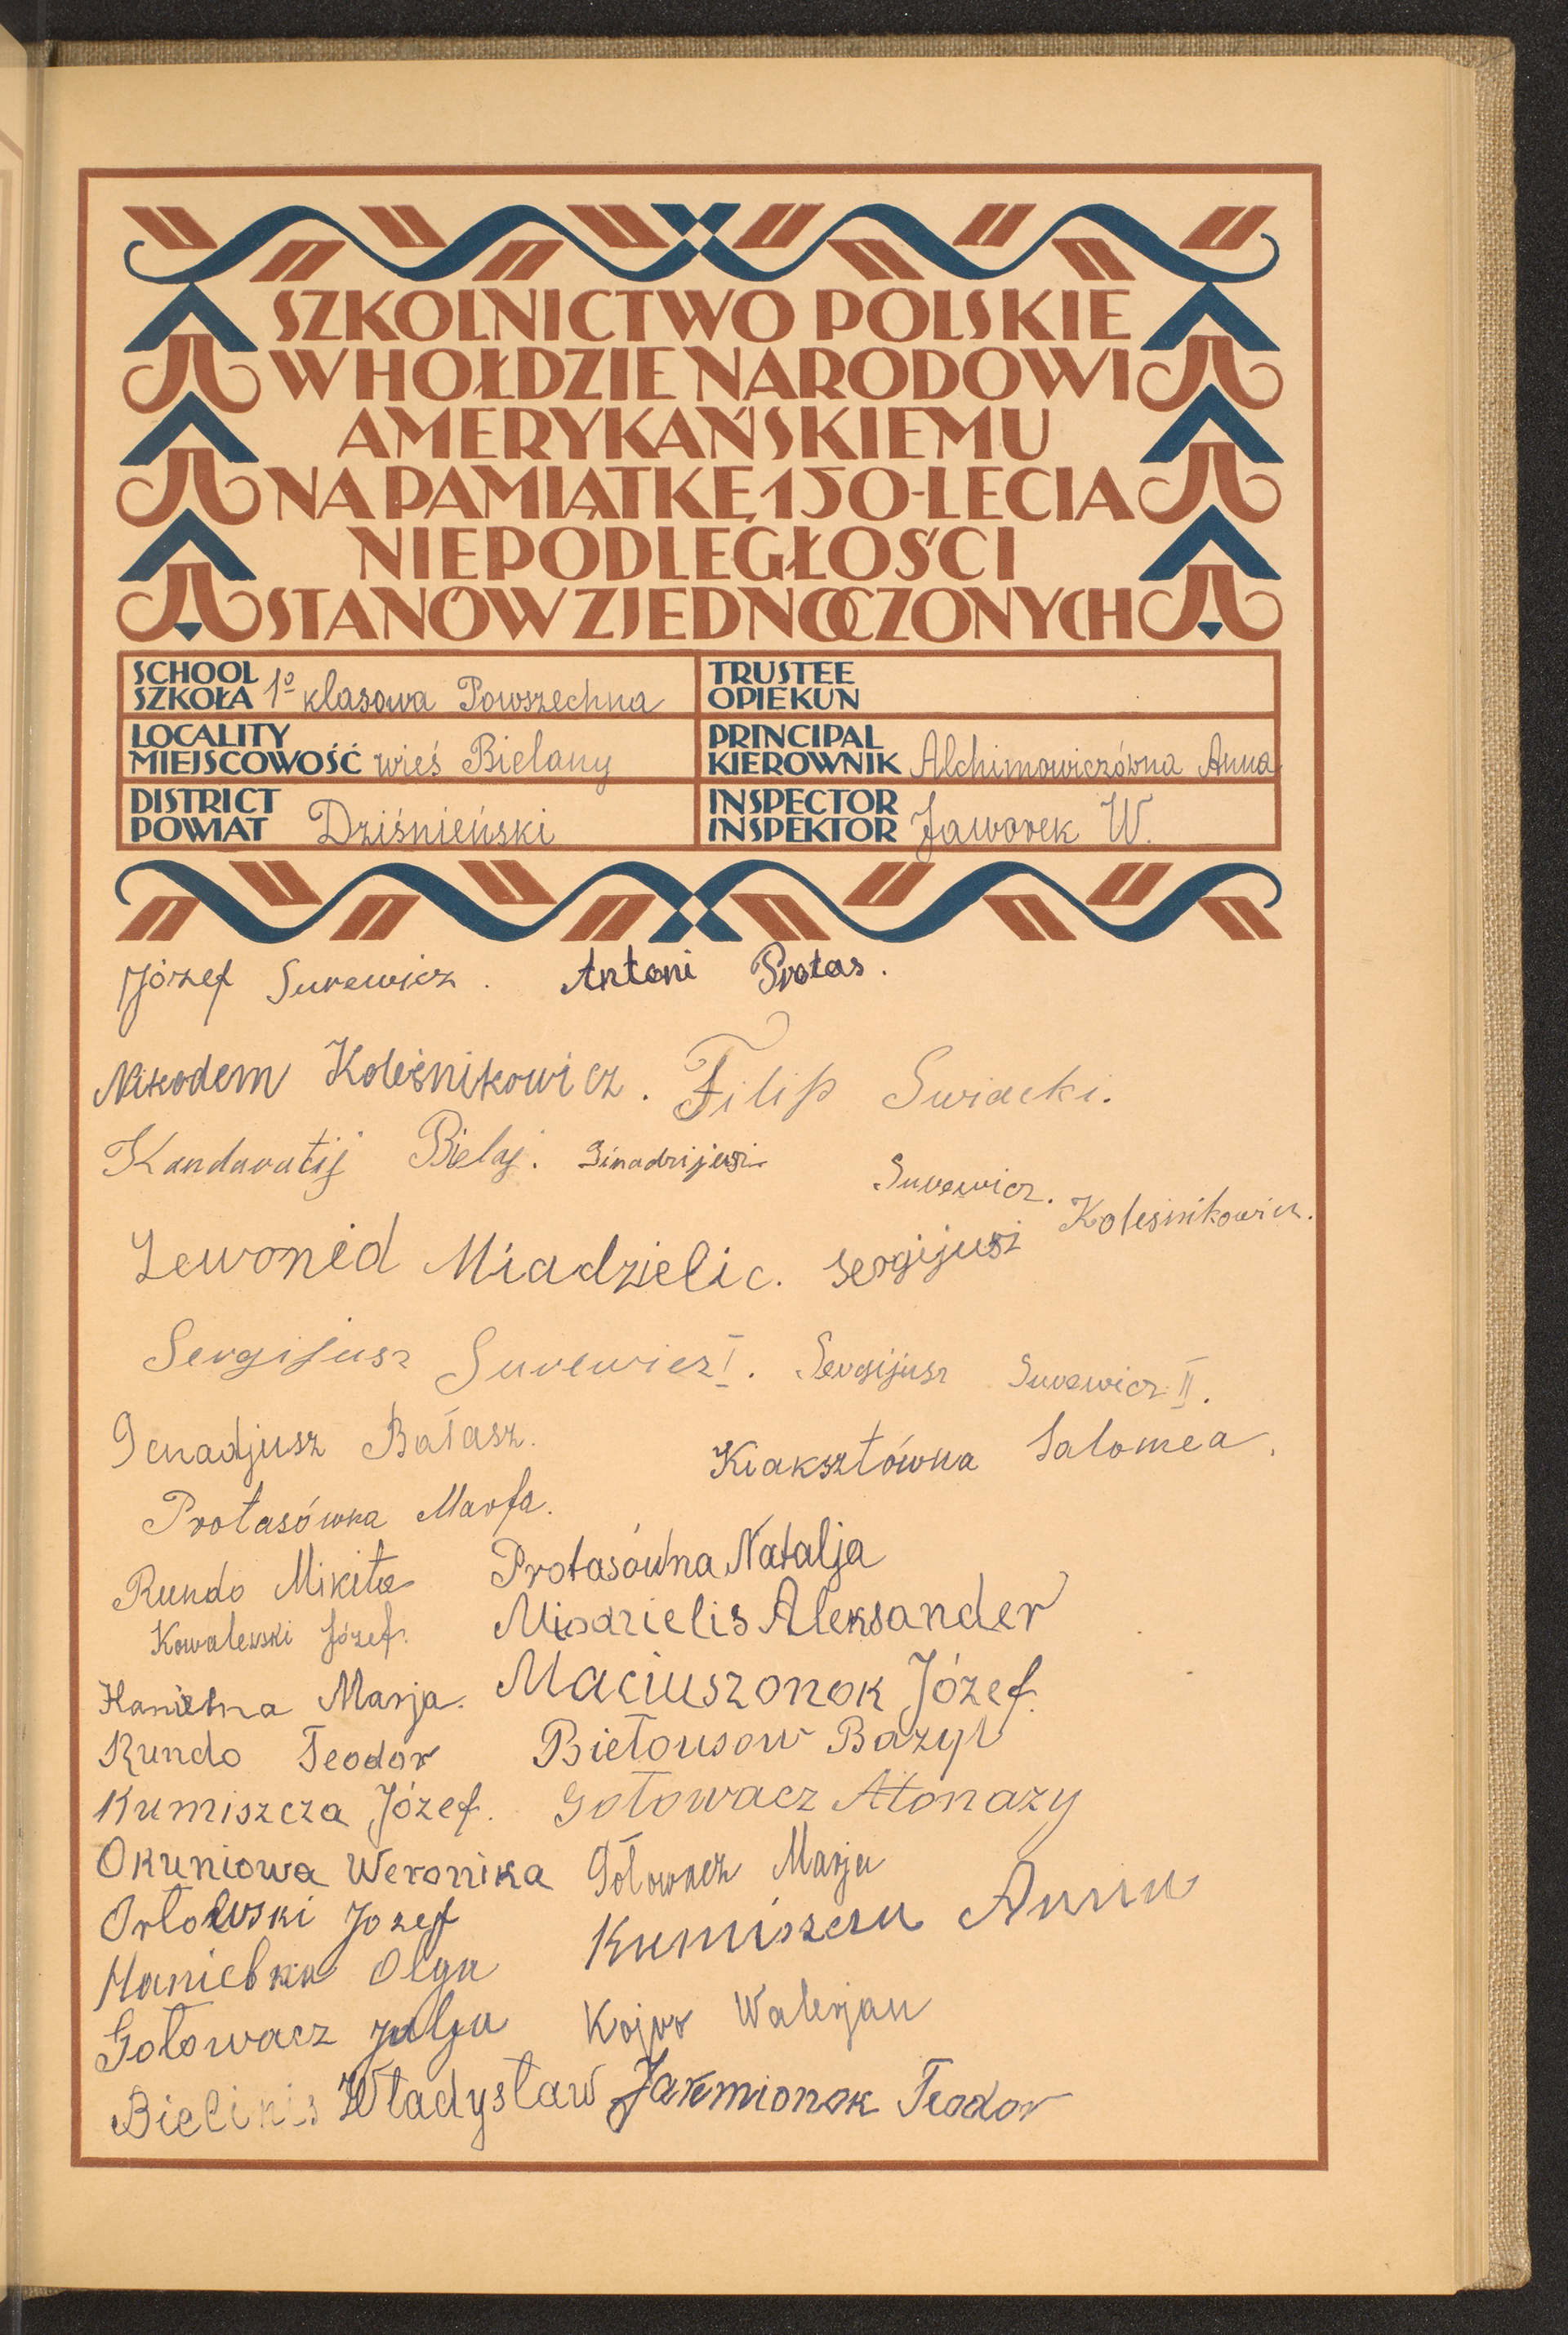 SZKOLNICTWO POLSKIE
W HOŁDZIE NARODOWI
AMERYKAŃSKIEMU
NA PAMIĄTKĘ 150-LECIA
NIEPODLEGŁOŚCI
STANÓW ZJEDNOCZONYCH
SCHOOL
SZKOŁA 1º klasowa Powszechna
TRUSTEE
OPIEKUN
LOCALITY
MIEJSCOWOŚĆ wieś Bielany
PRINCIPAL
KIEROWNIK Alchimowiczówna Anna
DISTRICT
POWIAT Dziśnieński
INSPECTOR
INSPEKTOR Jaworek W.
Józef Surewicz. Antoni Protas.
Nikodem Koleśnikowicz. Filip Swiacki.
Kandaratij Bielaj. Ginadrijusz Surewicz.
Lewonid Miadzielic. Sergijusz Kolesnikowicz.
Sergijusz Surewicz I. Sergijusz Surewicz II.
Genadjusz Bałasz. Kiaksztówna Salomea.
Protasówna Marfa.
Rundo Mikita Protasówna Natalja
Kowalewski Józef. Miadzielis Aleksander
Hanielna Marja. Maciuszonok Józef.
Rundo Teodor Biełousow Bazyl
Kumiszcza Józef. Gołowacz Atonazy
Okuniowa Weronika Gołowacz Marja
Orłowski Jozef Kumiszcza Anna
Olga
Gołowacz Julja Walerjan
Bielinis Władysław Jaremionok Teodor